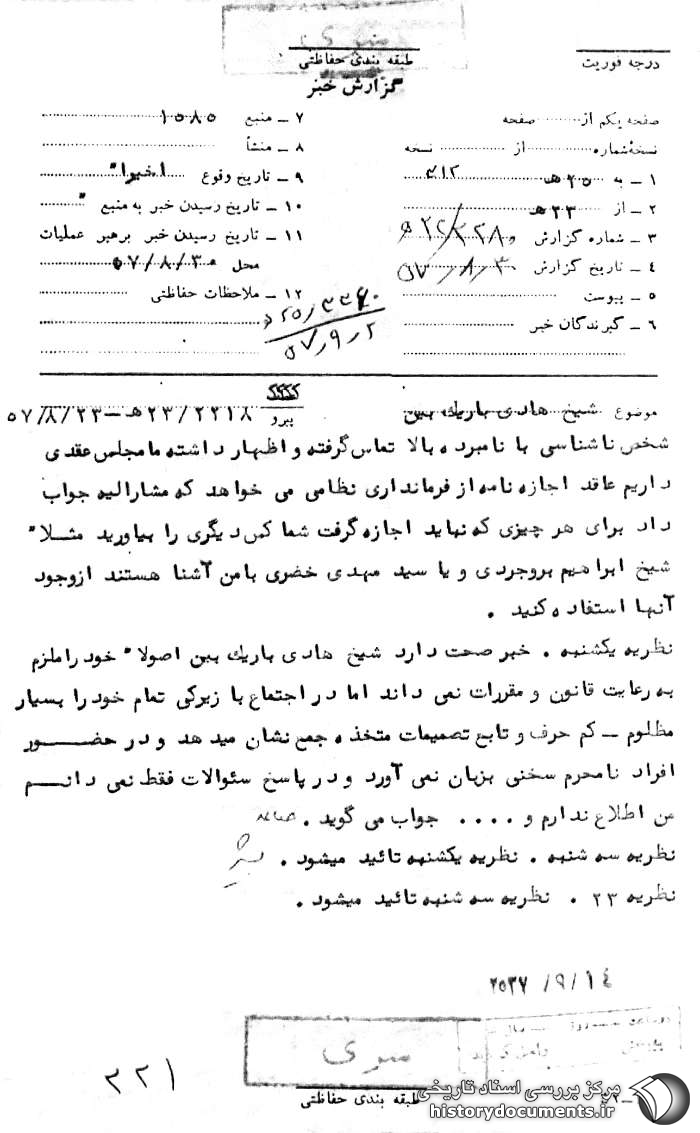 سری
درجه فوریت
طبقه بندی حفاظتی
گزارش خبر
صفحه یکم از صفحه
نسخهٔ شماره از نسخه
۱ ــ به ۲۵ هـ ۳۱۲
۲ ــ از ۲۳ هـ
۳ ــ شماره گزارش
۴ ــ تاریخ گزارش ۵۷/۸/۳۰
۵ ــ پیوست
۶ ــ گیرندگان خبر
۷ ــ منبع ۱۵۸۵
۸ ــ منشأ
۹ ــ تاریخ وقوع اخیرا"
۱۰ ــ تاریخ رسیدن خبر به منبع "
۱۱ ــ تاریخ رسیدن خبر برهبر عملیات
محل ۵۷/۸/۳۰
۱۲ ــ ملاحظات حفاظتی
۵۷/۹/۲
موضوع شیخ هادی باریک بین
پیرو ۲۳/۲۲۱۸ هـ ــ ۵۷/۸/۲۳
شخص ناشناسی با نامبرده بالا تماس گرفته و اظهار داشته ما مجلس عقدی
داریم عاقد اجازه نامه از فرمانداری نظامی می خواهد که مشارالیه جواب
داد برای هر چیزی که نباید اجازه گرفت شما کس دیگری را بیاورید مثلا"
شیخ ابراهیم بروجردی و یا سید مهدی خضری با من آشنا هستند ازوجود
آنها استفاده کنید .
نظریه یکشنبه . خبر صحت دارد شیخ هادی باریک بین اصولا" خود را ملزم
به رعایت قانون و مقررات نمی داند اما در اجتماع با زیرکی تمام خود را بسیار
مظلوم ــ کم حرف و تابع تصمیمات متخذه جمع نشان میدهد و در حضور
افراد نامحرم سخنی بزبان نمی آورد و در پاسخ سئوالات فقط نمی دانم
من اطلاع ندارم و .... جواب می گوید .
نظریه سه شنبه . نظریه یکشنبه تائید میشود .
نظریه ۲۳ . نظریه سه شنبه تائید میشود .
۲۵۳۷/۹/۱۴
سری
طبقه بندی حفاظتی
۳۲۱
مرکز بررسی اسناد تاریخی
historydocuments.ir